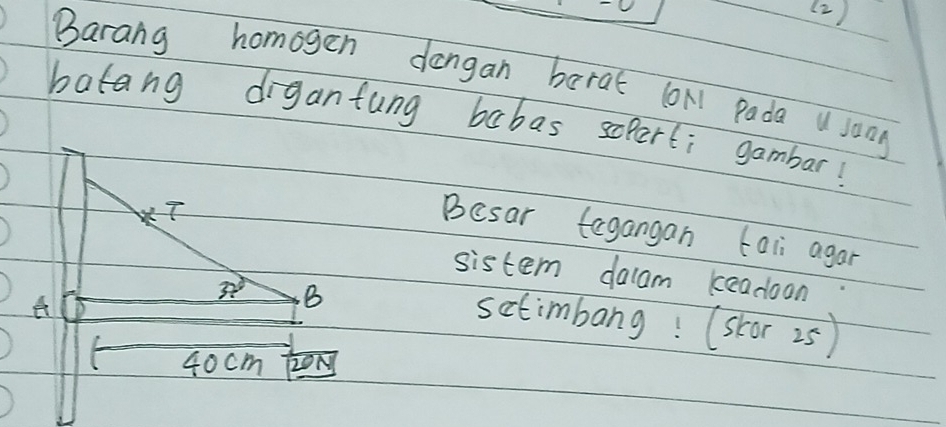 (2)
Barang homogen dengan berat 10N pada ujang
batang digantung bebas seperti gambar!
T
Besar tegangan tali agar
sistem dalam keadaan
37°
A
B
setimbang! (skor 25)
40cm
20N